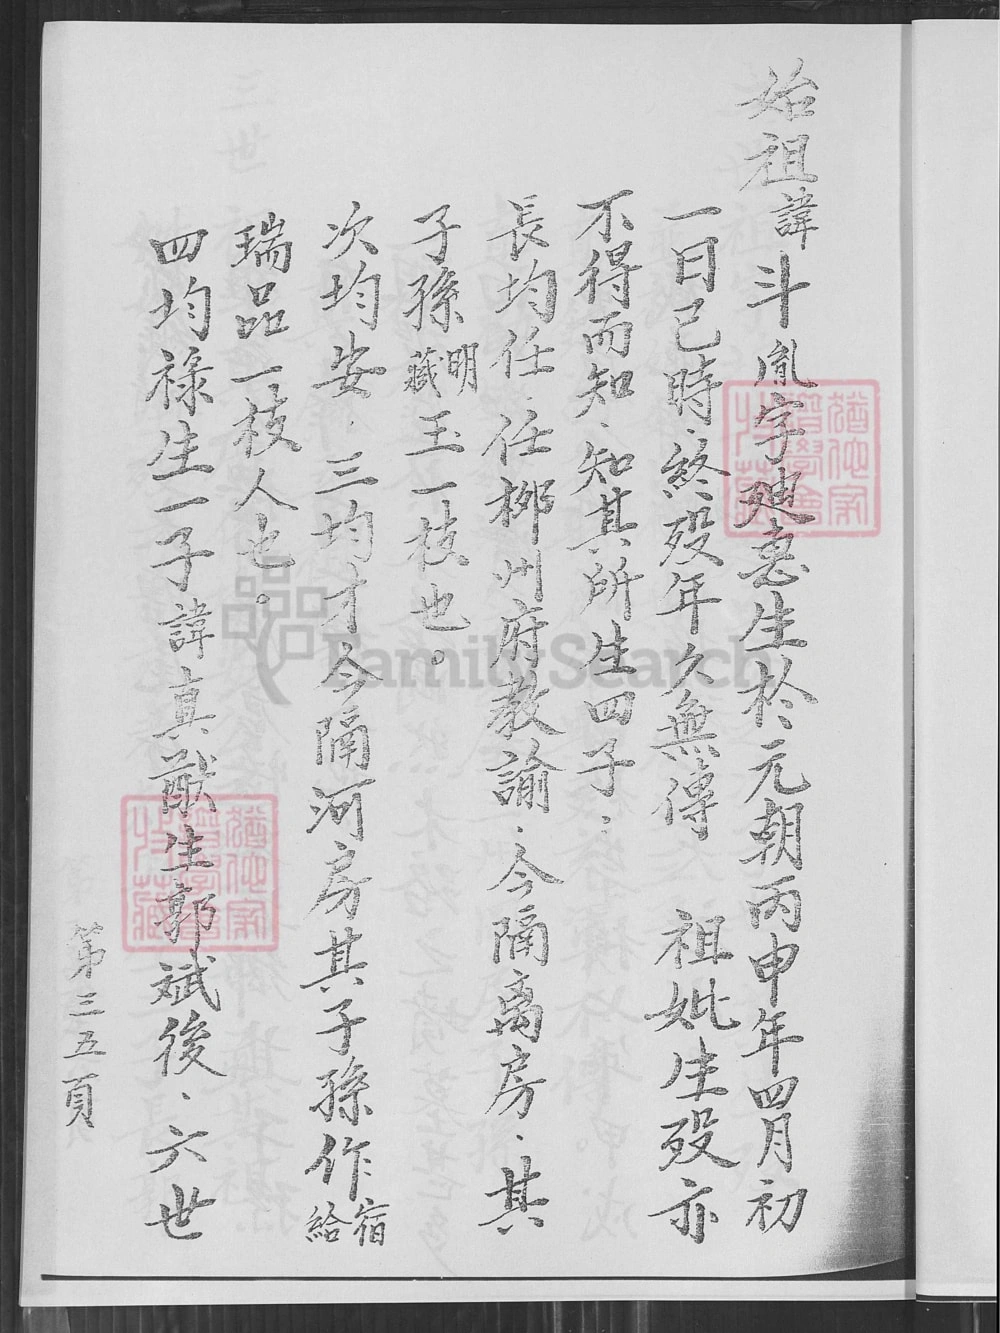 始祖諱斗胤字廸惠生於元朝丙申年四月初
一日己時.終歿年久無傳 祖妣生歿亦
不得而知.知其所生四子.
長均任.任柳州府教諭.今隔离房.其
子孫明藏玉一枝也。
次均安.三均才今隔河房其子孫作宿給
瑞品一枝人也。
四均祿生一子諱真猷生郭斌後.六世
第三五頁
FamilySearch